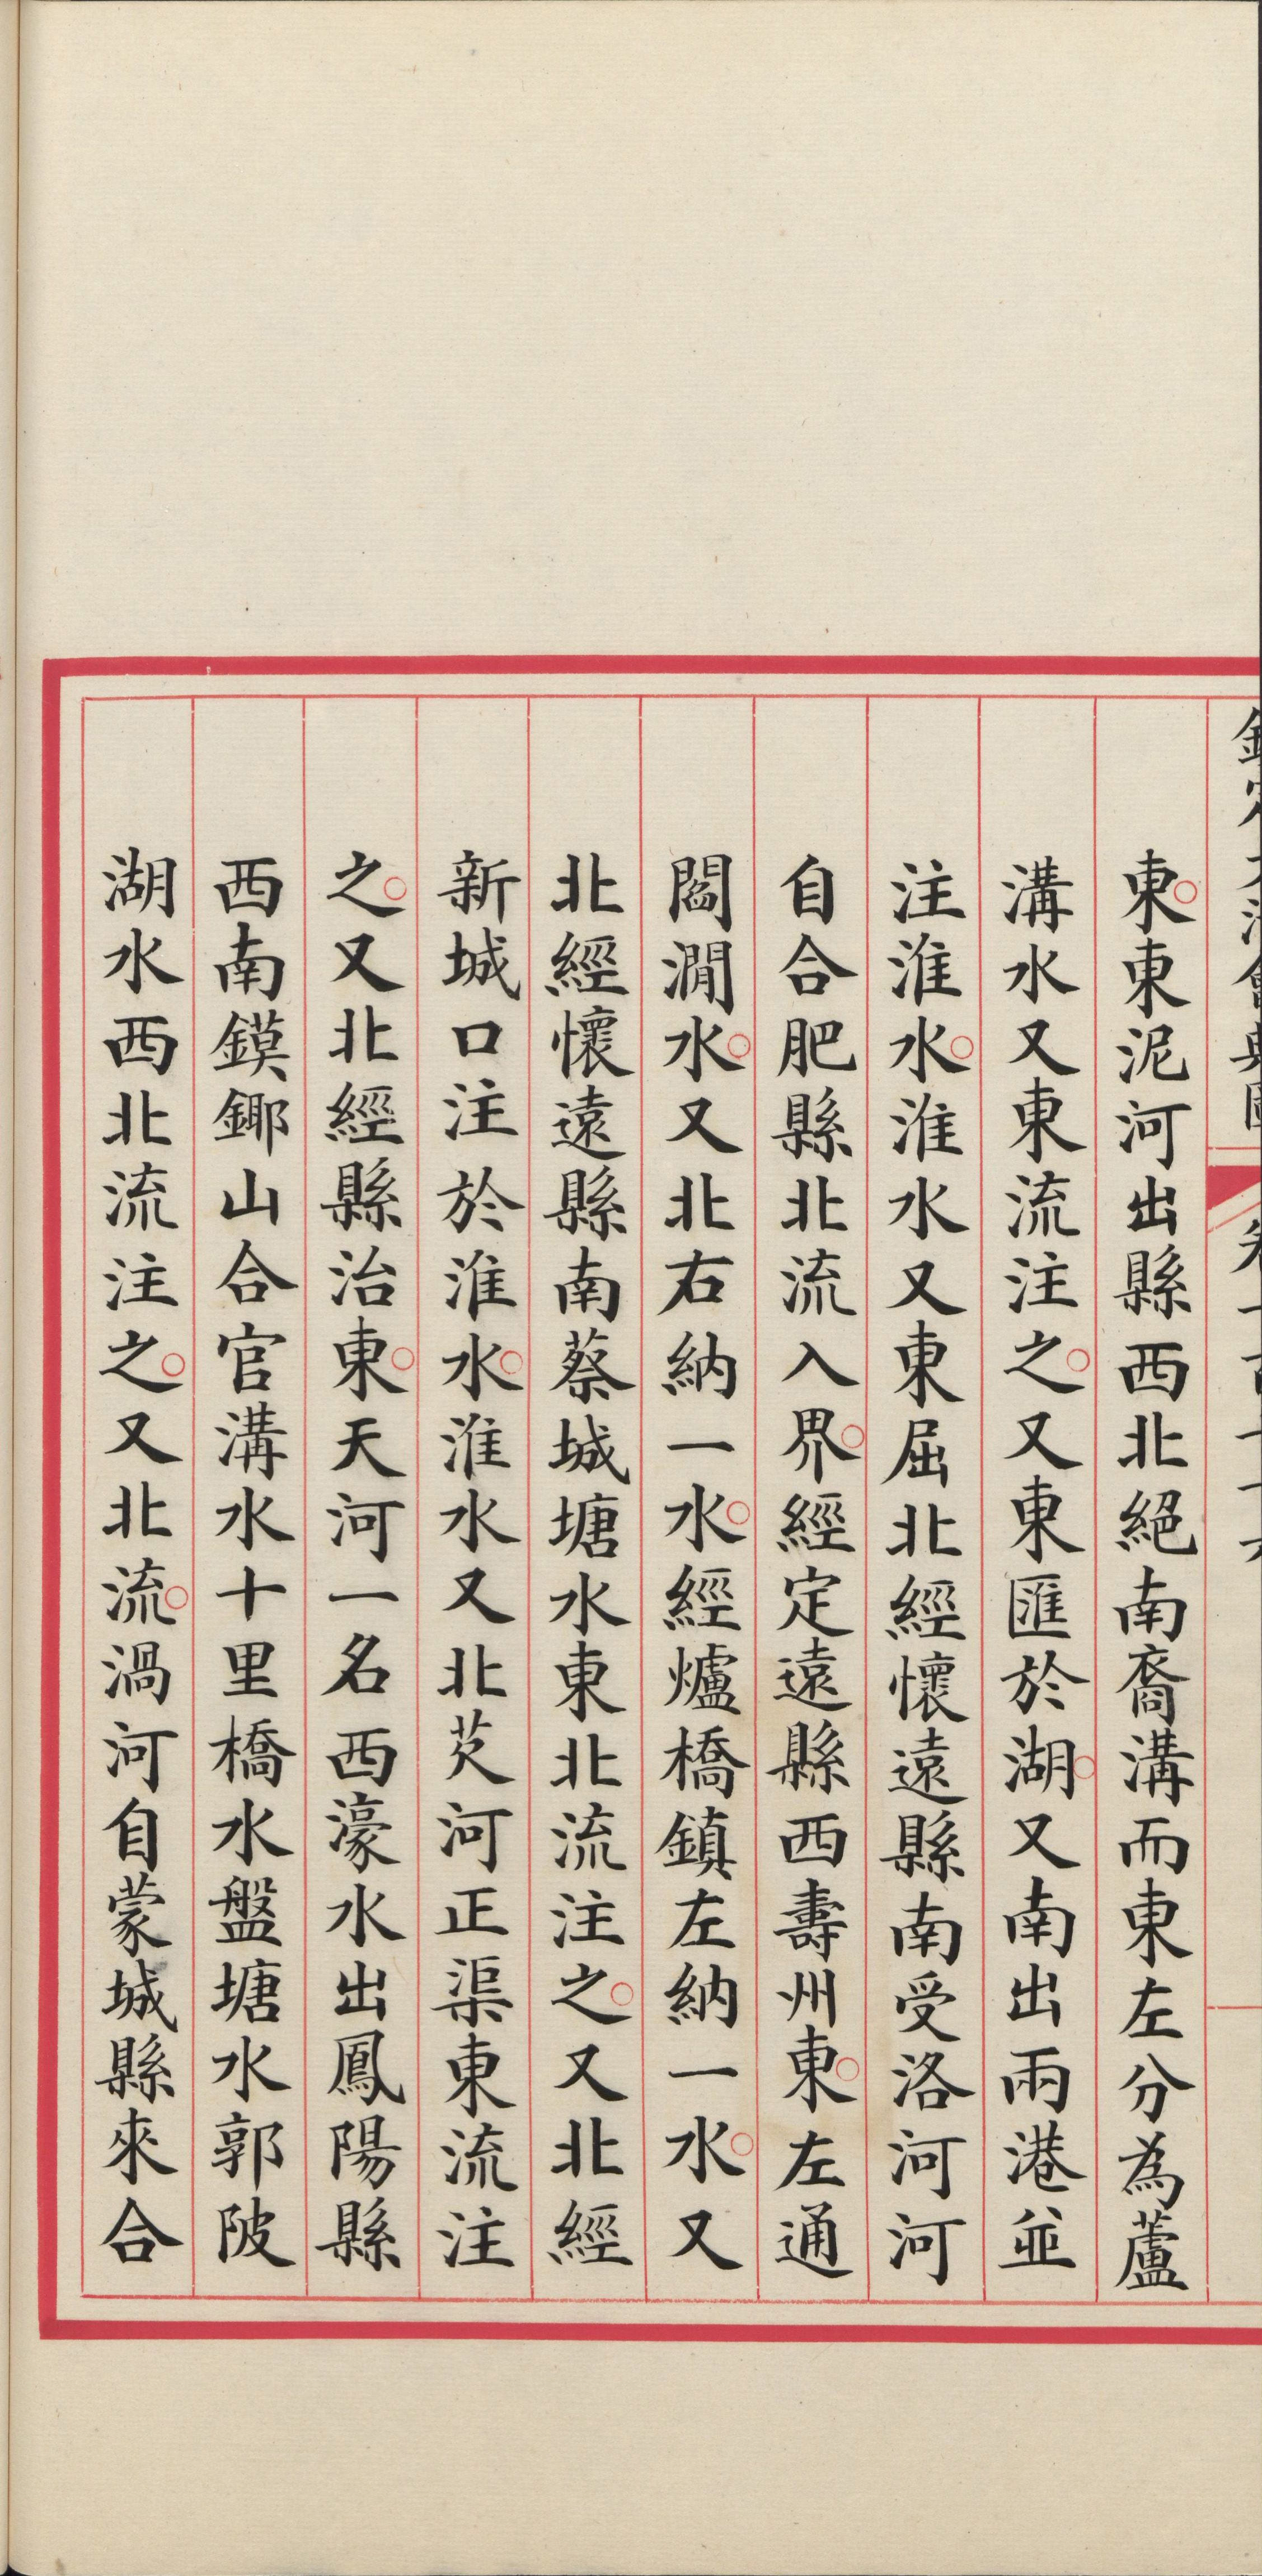 東東泥河出縣西北絕南裔溝而東左分為蘆
溝水又東流注之又東匯於湖又南出兩港並
注淮水淮水又東屈北經懷遠縣南受洛河河
自合肥縣北流入界經定遠縣西壽州東左通
閻澗水又北右納一水經爐橋鎮左納一水又
北經懷遠縣南蔡城塘水東北流注之又北經
新城口注於淮水淮水又北芡河正渠東流注
之又北經縣治東天河一名西濠水出鳳陽縣
西南鏌鎁山合官溝水十里橋水盤塘水郭陂
湖水西北流注之又北流渦河自蒙城縣來合